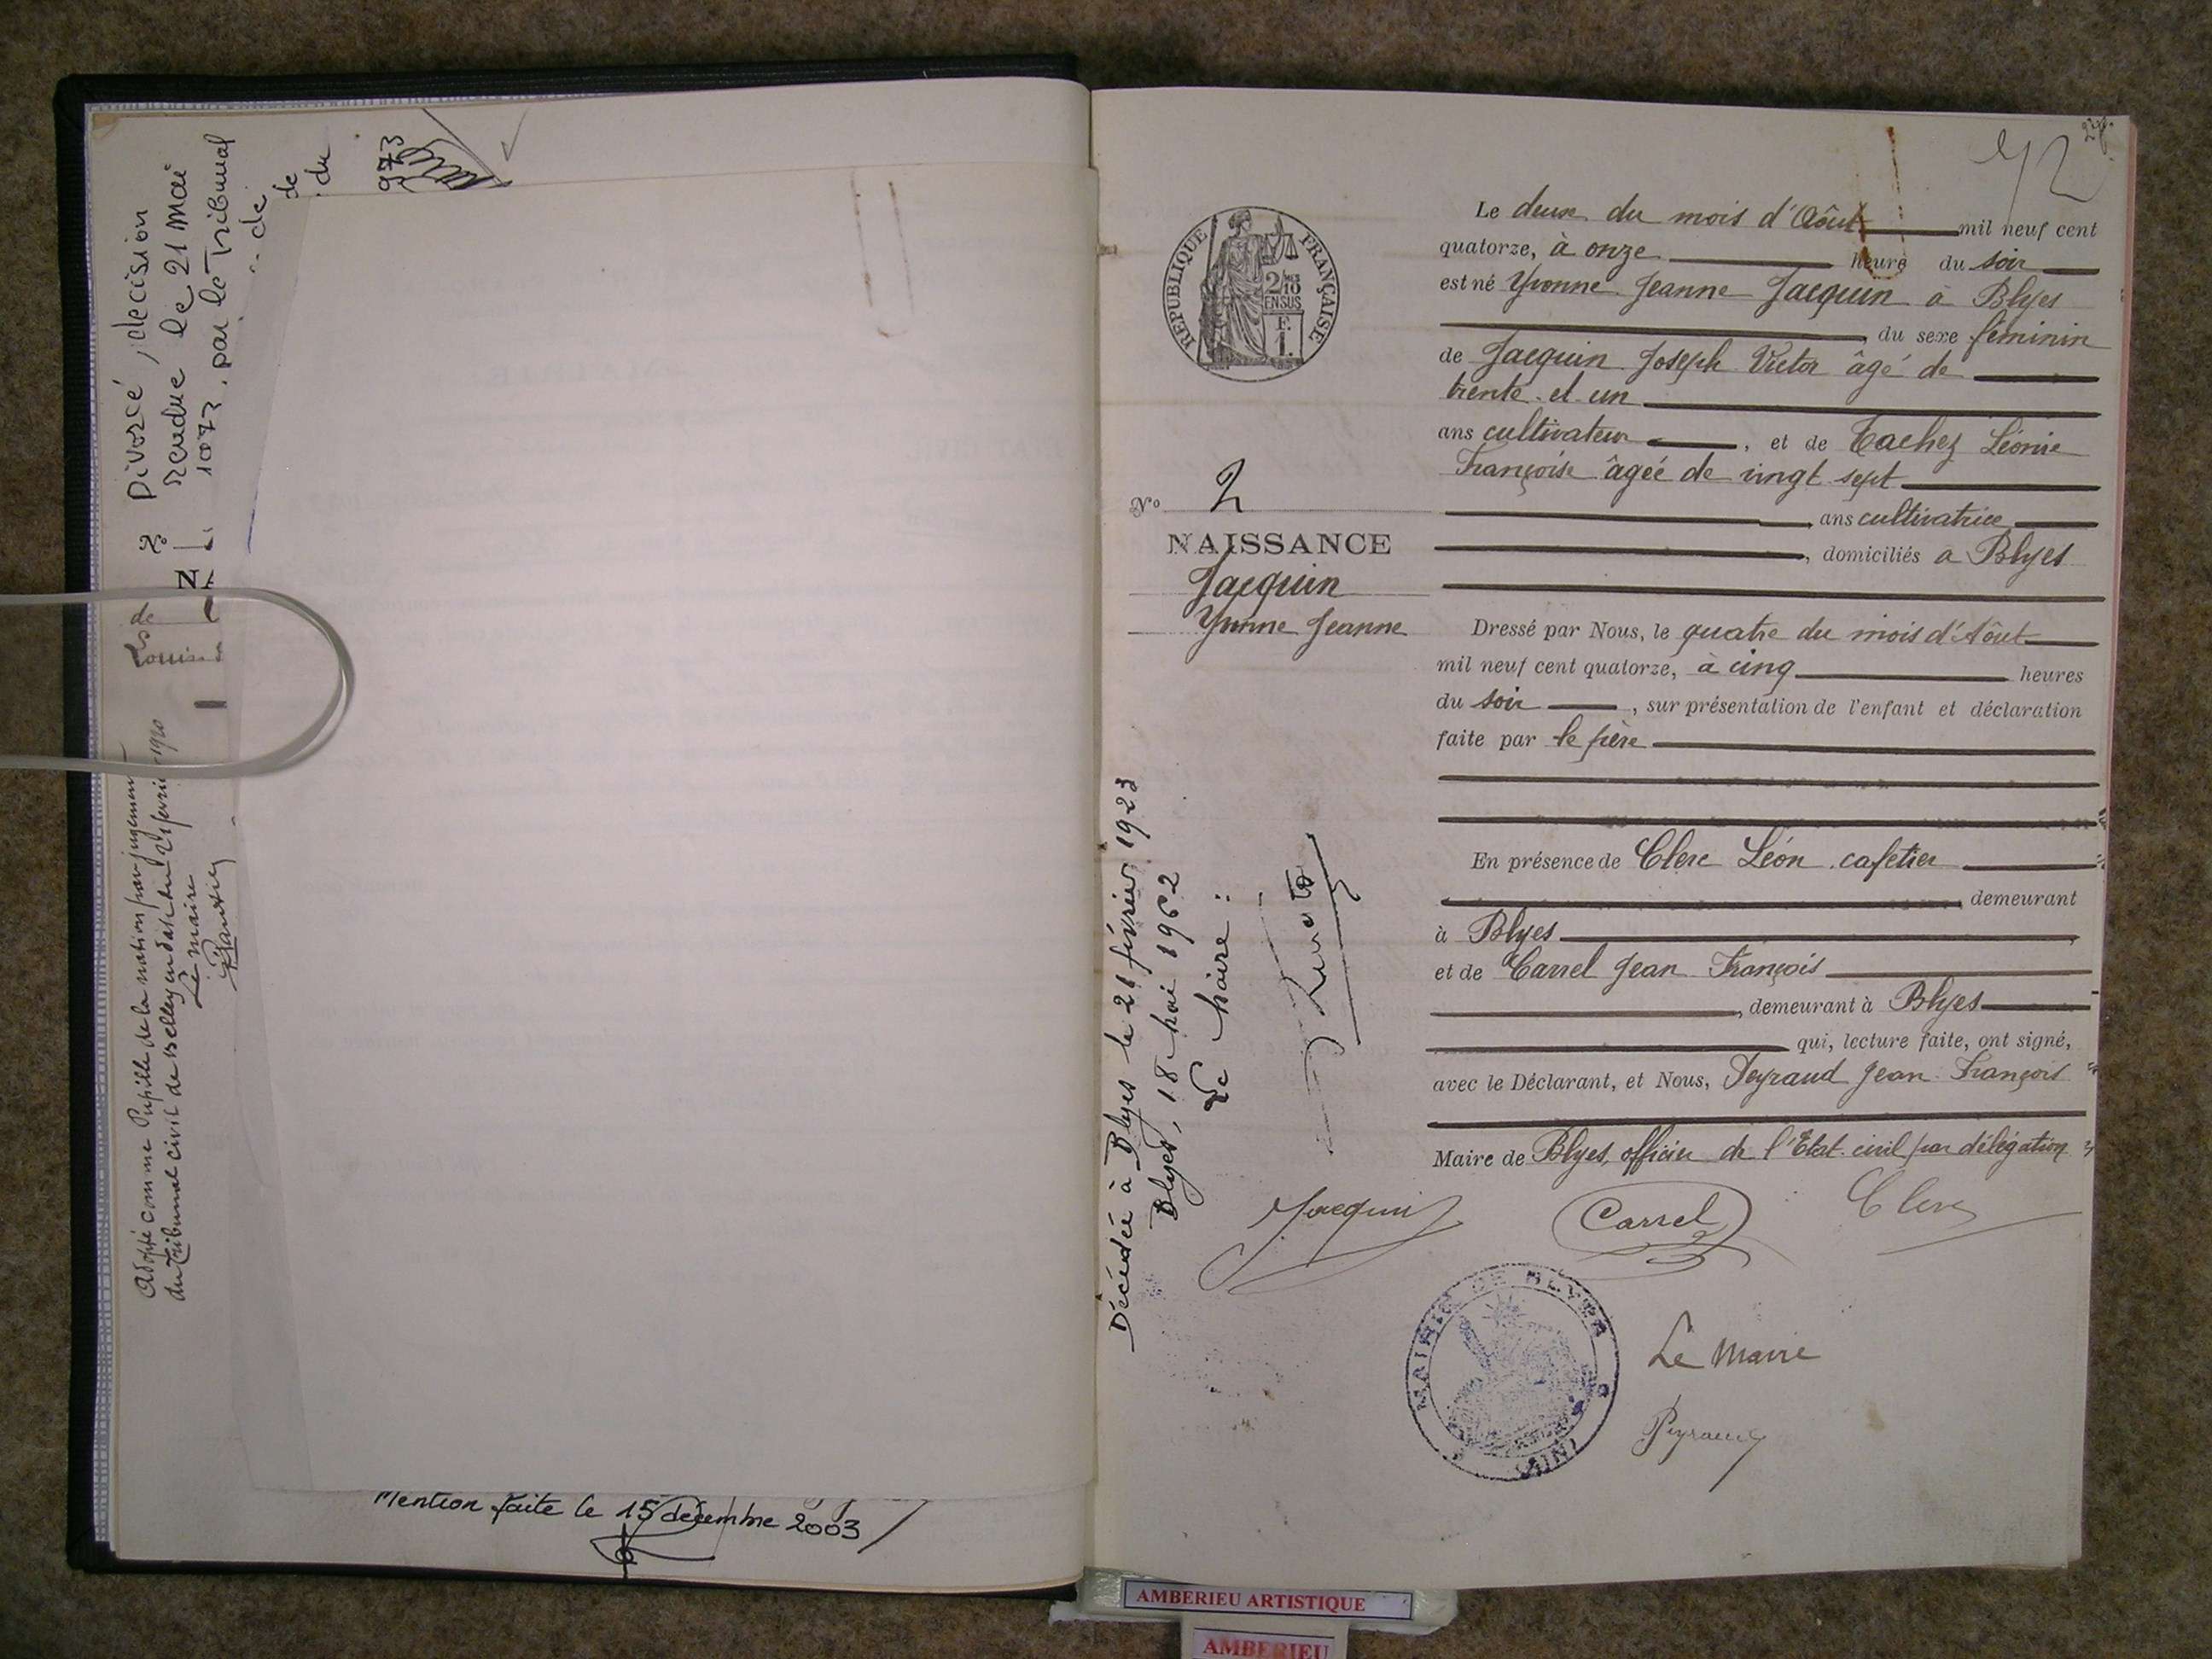 Divorcé, décision
rendue le 21 mai
1973, par le Tribunal
de
de
du
973
No
NA
de
Louis
Adopté comme Pupille de la nation par jugement
du Tribunal civil de Belley en date du février 1920
Le maire
Mention faite le 15 décembre 2003
72
REPUBLIQUE FRANÇAISE
2/10MES
EN SUS
F.
1.
No 2
NAISSANCE
Jacquin
Yvonne Jeanne
Décédée à Blyes le 21 février 1923
Blyes, 18 Mai 1962
Le Maire :
Le deux du mois d'Aôut mil neuf cent
quatorze, à onze heure du soir
est né Yvonne Jeanne Jacquin à Blyes
, du sexe féminin
de Jacquin Joseph Victor âgé de
trente et un
ans cultivateur , et de Tachez Léonie
Françoise âgée de vingt sept
, ans cultivatrice
, domiciliés à Blyes
Dressé par Nous, le quatre du mois d'Aôut
mil neuf cent quatorze, à cinq heures
du soir , sur présentation de l'enfant et déclaration
faite par le père
En présence de Clerc Léon cafetier
, demeurant
à Blyes ,
et de Carrel Jean François
, demeurant à Blyes
qui, lecture faite, ont signé,
avec le Déclarant, et Nous, Peyraud Jean François
Maire de Blyes, officier de l'Etat civil par délégation
Jacquin Carrel Clerc
MAIRIE DE BLYES
(AIN)
Le Maire
Peyraud
AMBERIEU ARTISTIQUE
AMBERIEU